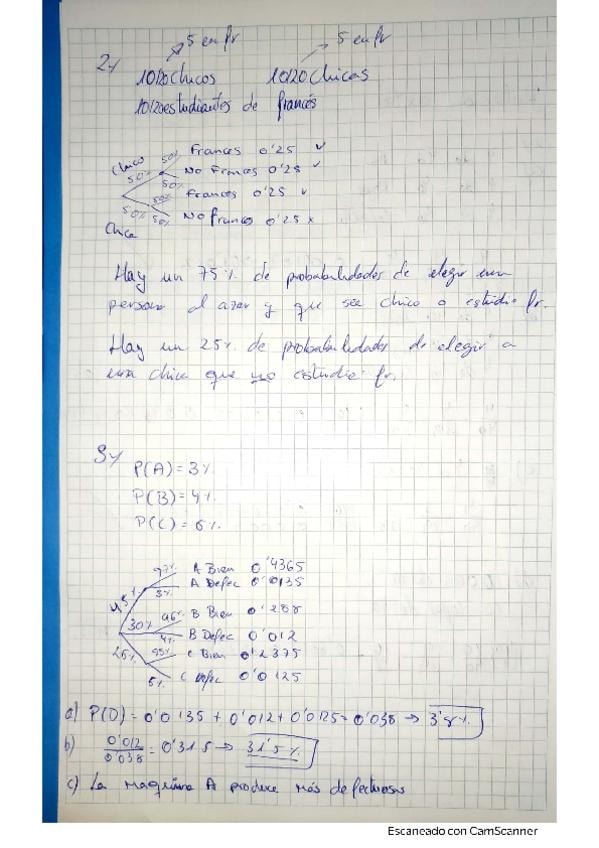 5 en fr 5 en fr
2) 10/20 chicos 10/20 chicas
10/20 estudiantes de francés
Chico 50% 50% Frances 0'25 ✓
50% No Frances 0'25 ✓
50% 50% Frances 0'25 ✓
50% No frances 0'25 x
Chica
Hay un 75% de probabilidades de elegir una
persona al azar y que sea chico o estudie fr.
Hay un 25% de probabilidades de elegir a
una chica que no estudie fr.
3) P(A) = 3%
P(B) = 4%
P(C) = 5%
45% 97% A Bien 0'4365
3% A Defec 0'0135
30% 96% B Bien 0'288
4% B Defec 0'012
25% 95% C Bien 0'2375
5% C Defec 0'0125
a) P(D) = 0'0135 + 0'012 + 0'0125 = 0'038 → 3'8%
b) 0'012/0'038 = 0'315 → 31'5%
c) La maquina A produce más defectuosos
Escaneado con CamScanner